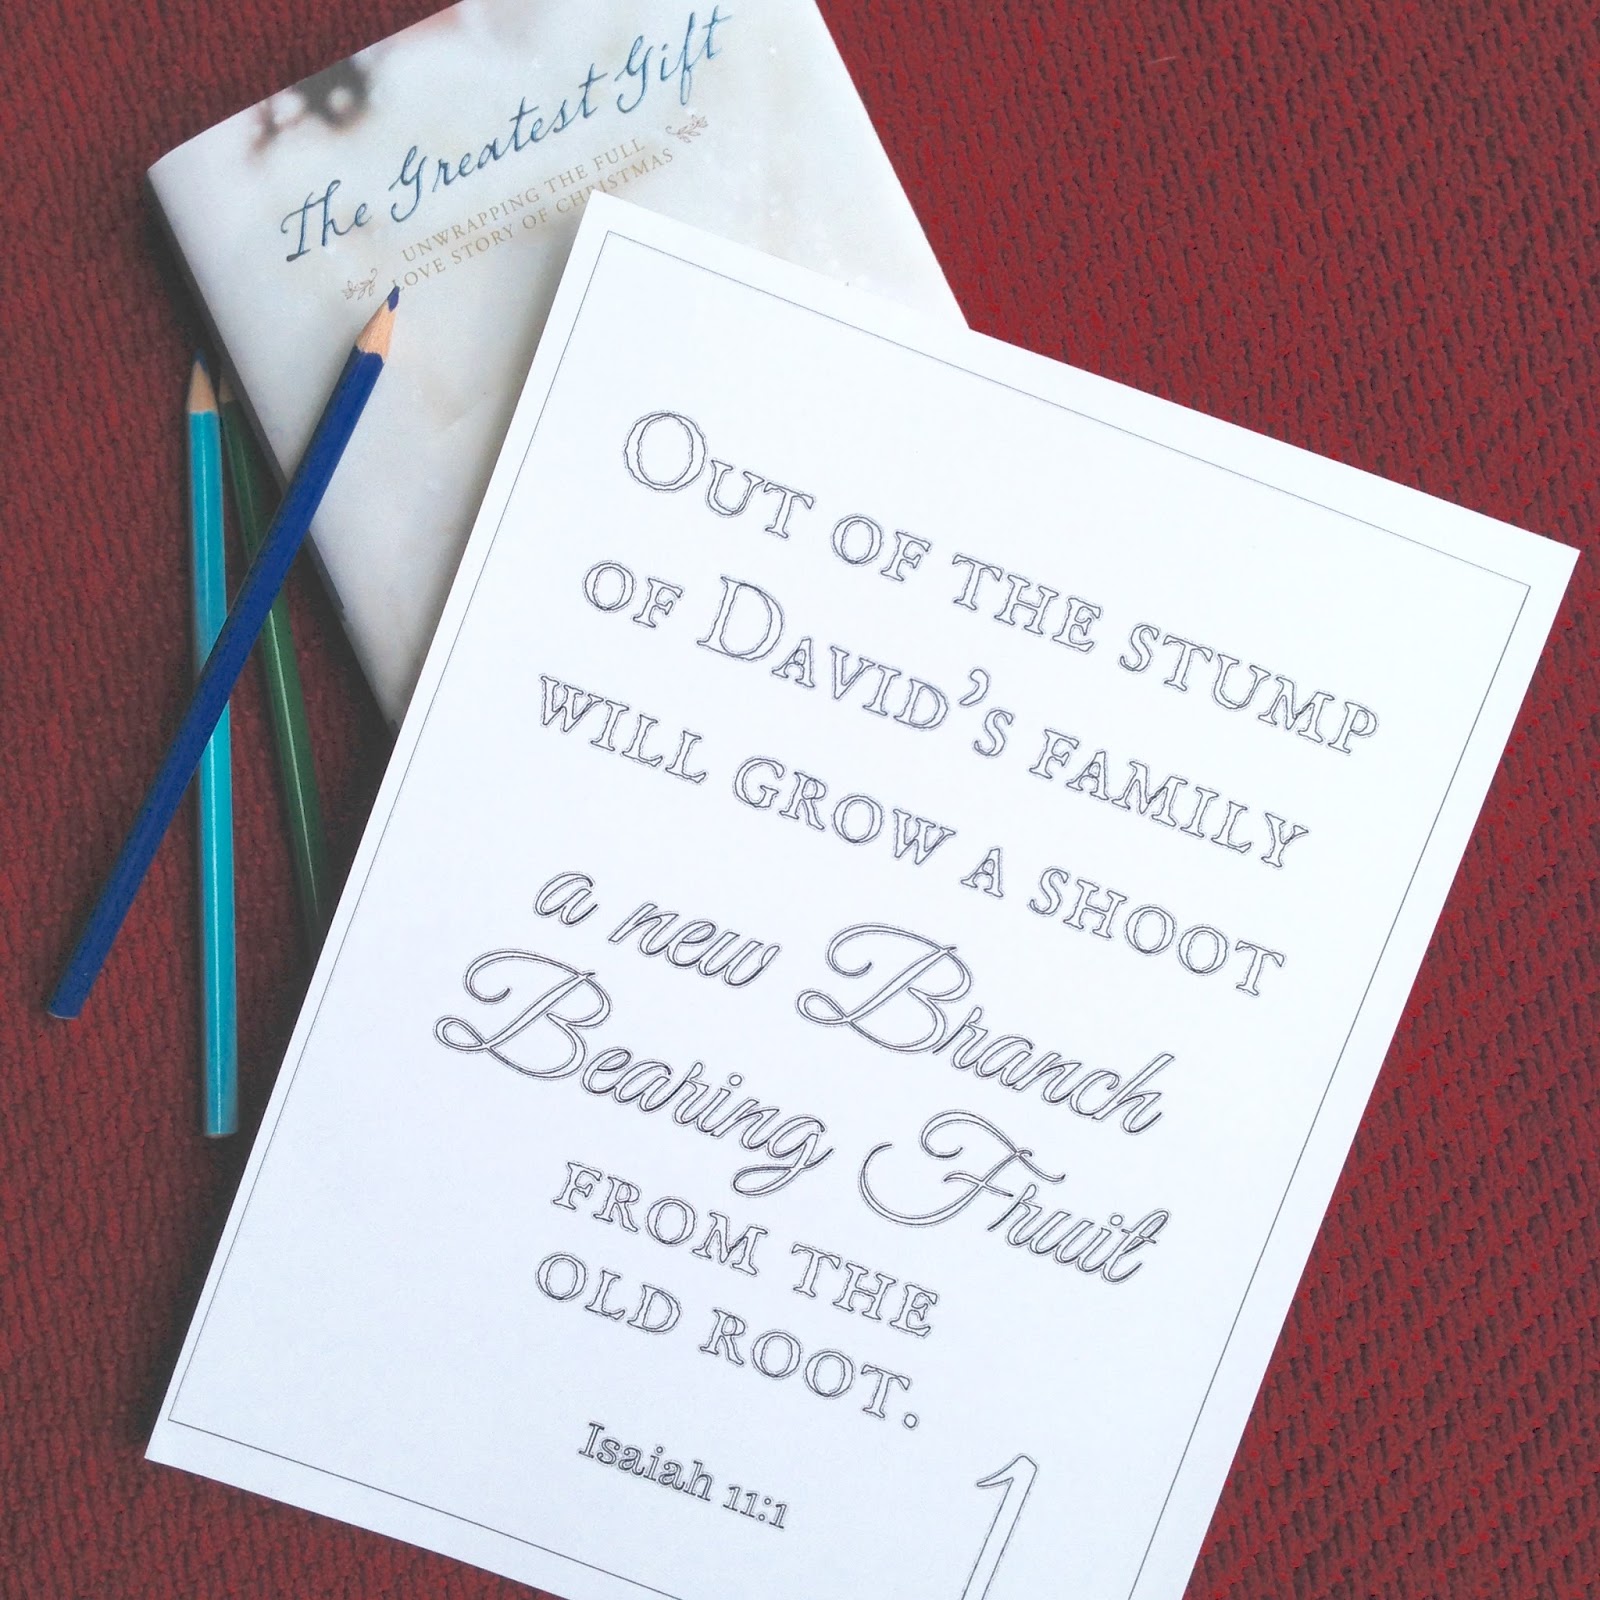 The Greatest Gift
UNWRAPPING THE FULL
LOVE STORY OF CHRISTMAS
OUT OF THE STUMP
OF DAVID'S FAMILY
WILL GROW A SHOOT
a new Branch
Bearing Fruit
FROM THE
OLD ROOT.
Isaiah 11:1
1